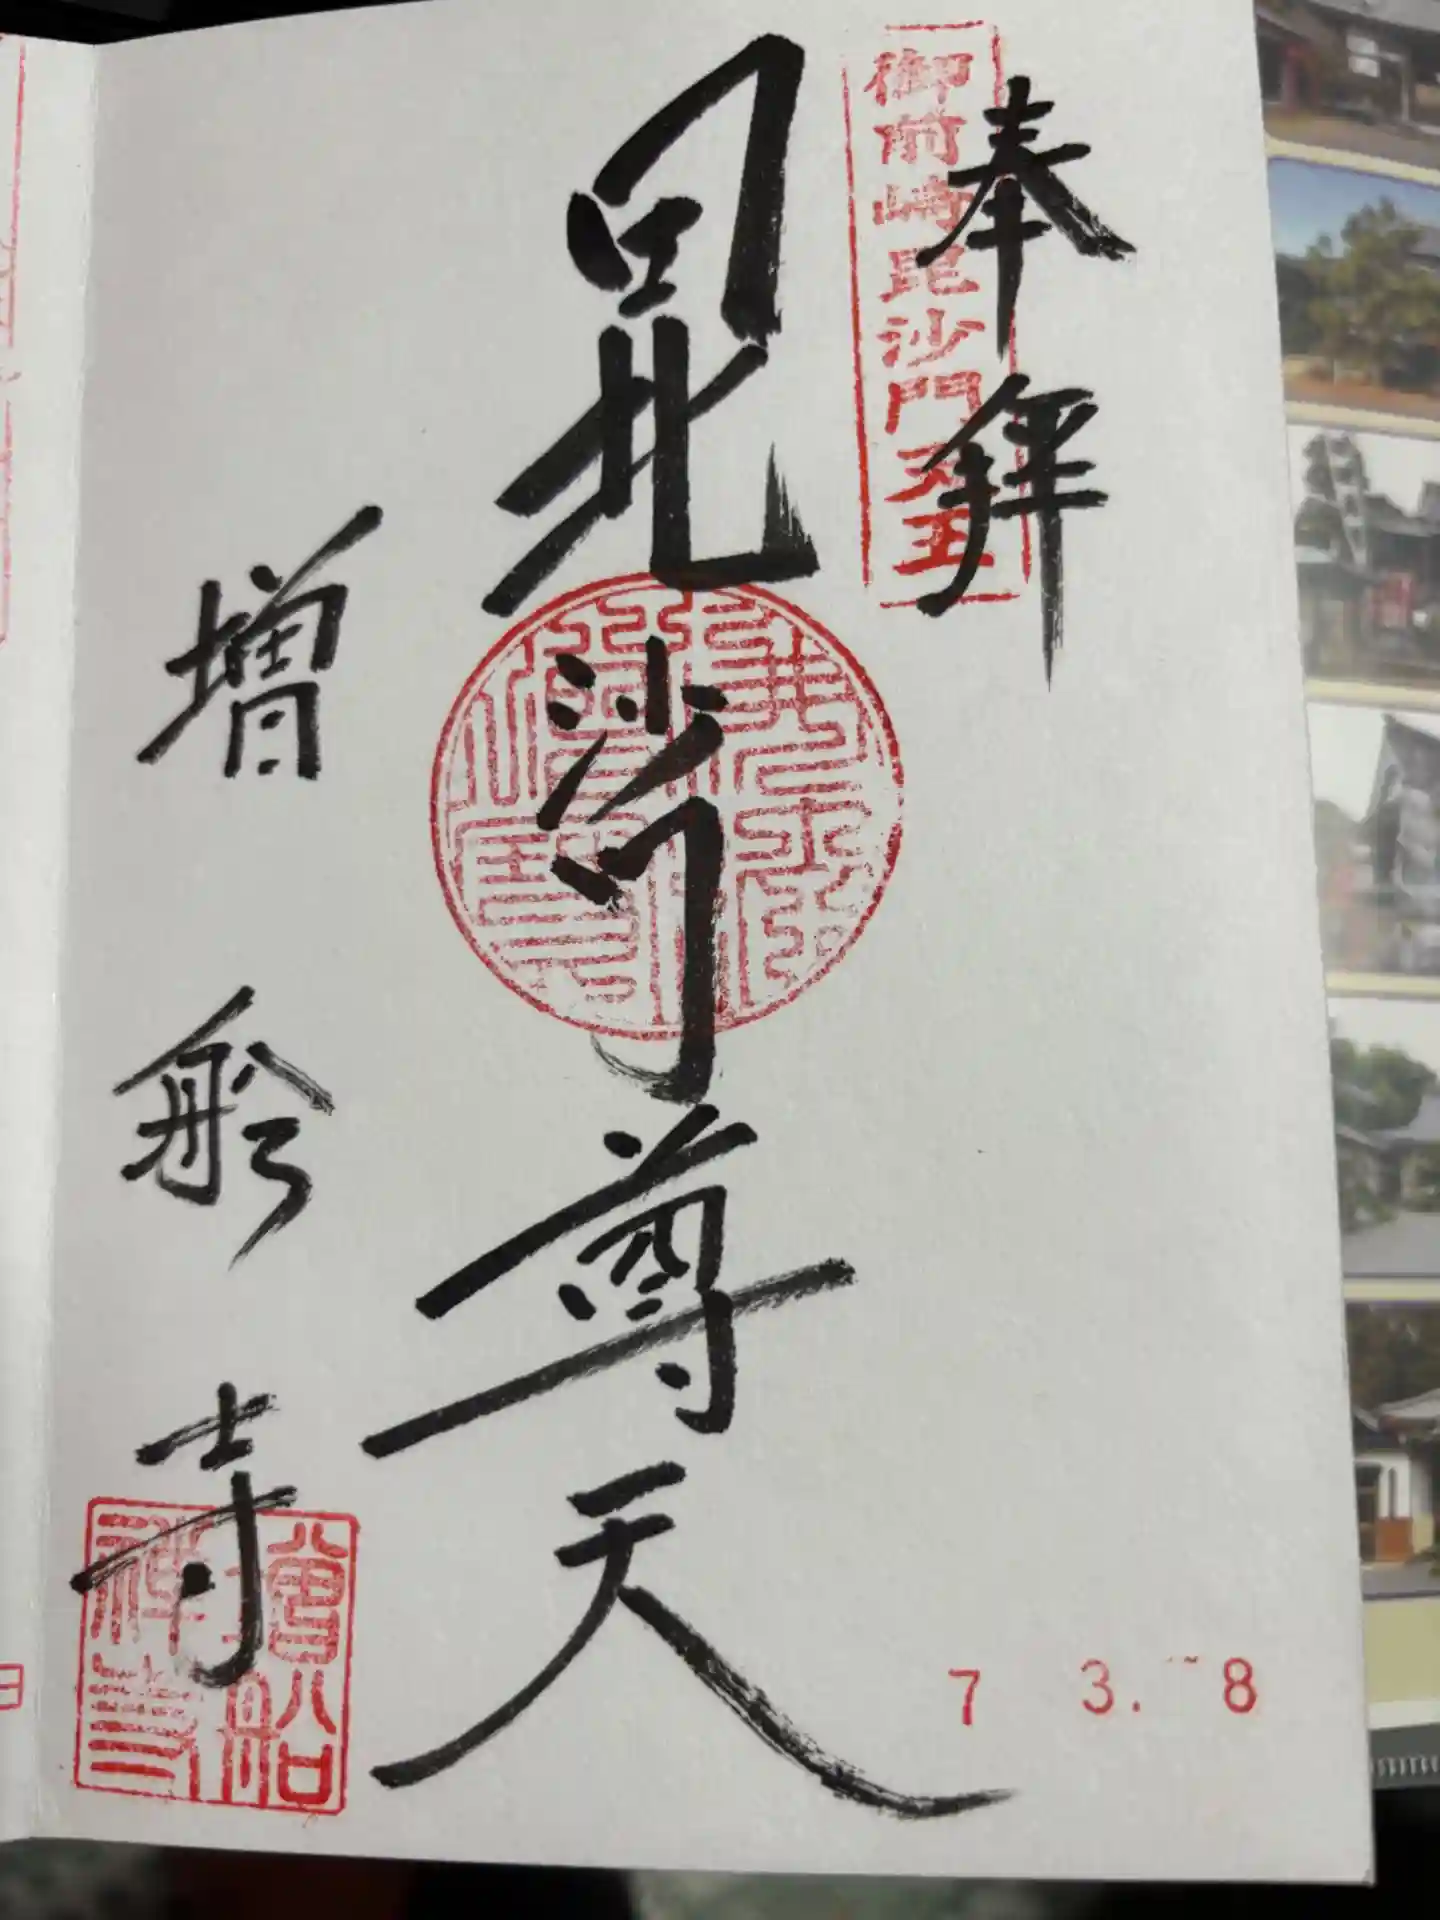 奉拝
御前崎毘沙門天
毘沙門尊天
増船寺
増船禅寺
7 3. 8